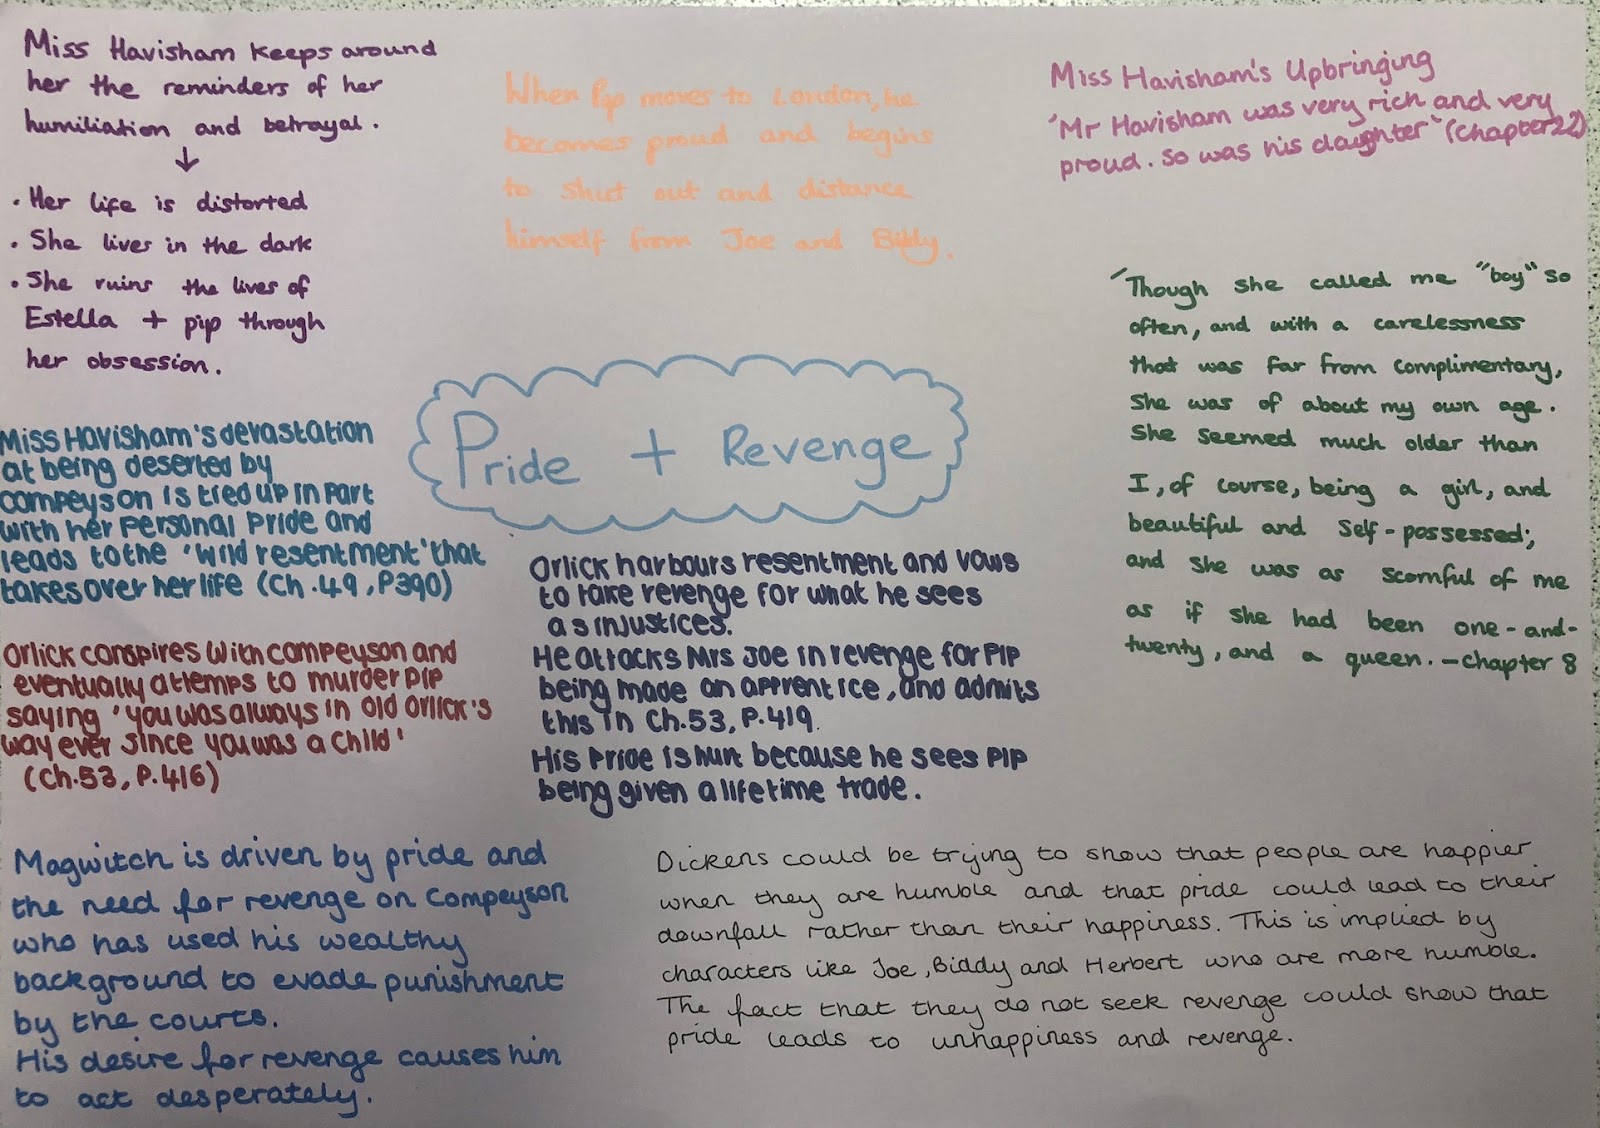 Miss Havisham keeps around
her the reminders of her
humiliation and betrayal.
↓
• Her life is distorted
• She lives in the dark
• She ruins the lives of
Estella + pip through
her obsession.
When Pip moves to London, he
becomes proud and begins
to shut out and distance
himself from Joe and Biddy.
Miss Havisham's Upbringing
'Mr Havisham was very rich and very
proud. So was his daughter' (Chapter 22)
'Though she called me "boy" so
often, and with a carelessness
that was far from complimentary,
she was of about my own age.
She seemed much older than
I, of course, being a girl, and
beautiful and self-possessed;
and she was as scornful of me
as if she had been one-and-
twenty, and a queen. - Chapter 8
Pride + Revenge
Miss Havisham's devastation
at being deserted by
Compeyson is tied up in part
with her personal pride and
leads to the 'wild resentment' that
takes over her life (Ch.49, P390)
Orlick conspires with compeyson and
eventually attemps to murder pip
saying 'you was always in old orlick's
way ever since you was a child'
(Ch.53, P.416)
Orlick harbours resentment and vows
to take revenge for what he sees
as injustices.
He attacks Mrs Joe in revenge for Pip
being made an apprentice, and admits
this in Ch.53, P.419.
His pride is hurt because he sees Pip
being given a lifetime trade.
Magwitch is driven by pride and
the need for revenge on Compeyson
who has used his wealthy
background to evade punishment
by the courts.
His desire for revenge causes him
to act desperately.
Dickens could be trying to show that people are happier
when they are humble and that pride could lead to their
downfall rather than their happiness. This is implied by
characters like Joe, Biddy and Herbert who are more humble.
The fact that they do not seek revenge could show that
pride leads to unhappiness and revenge.